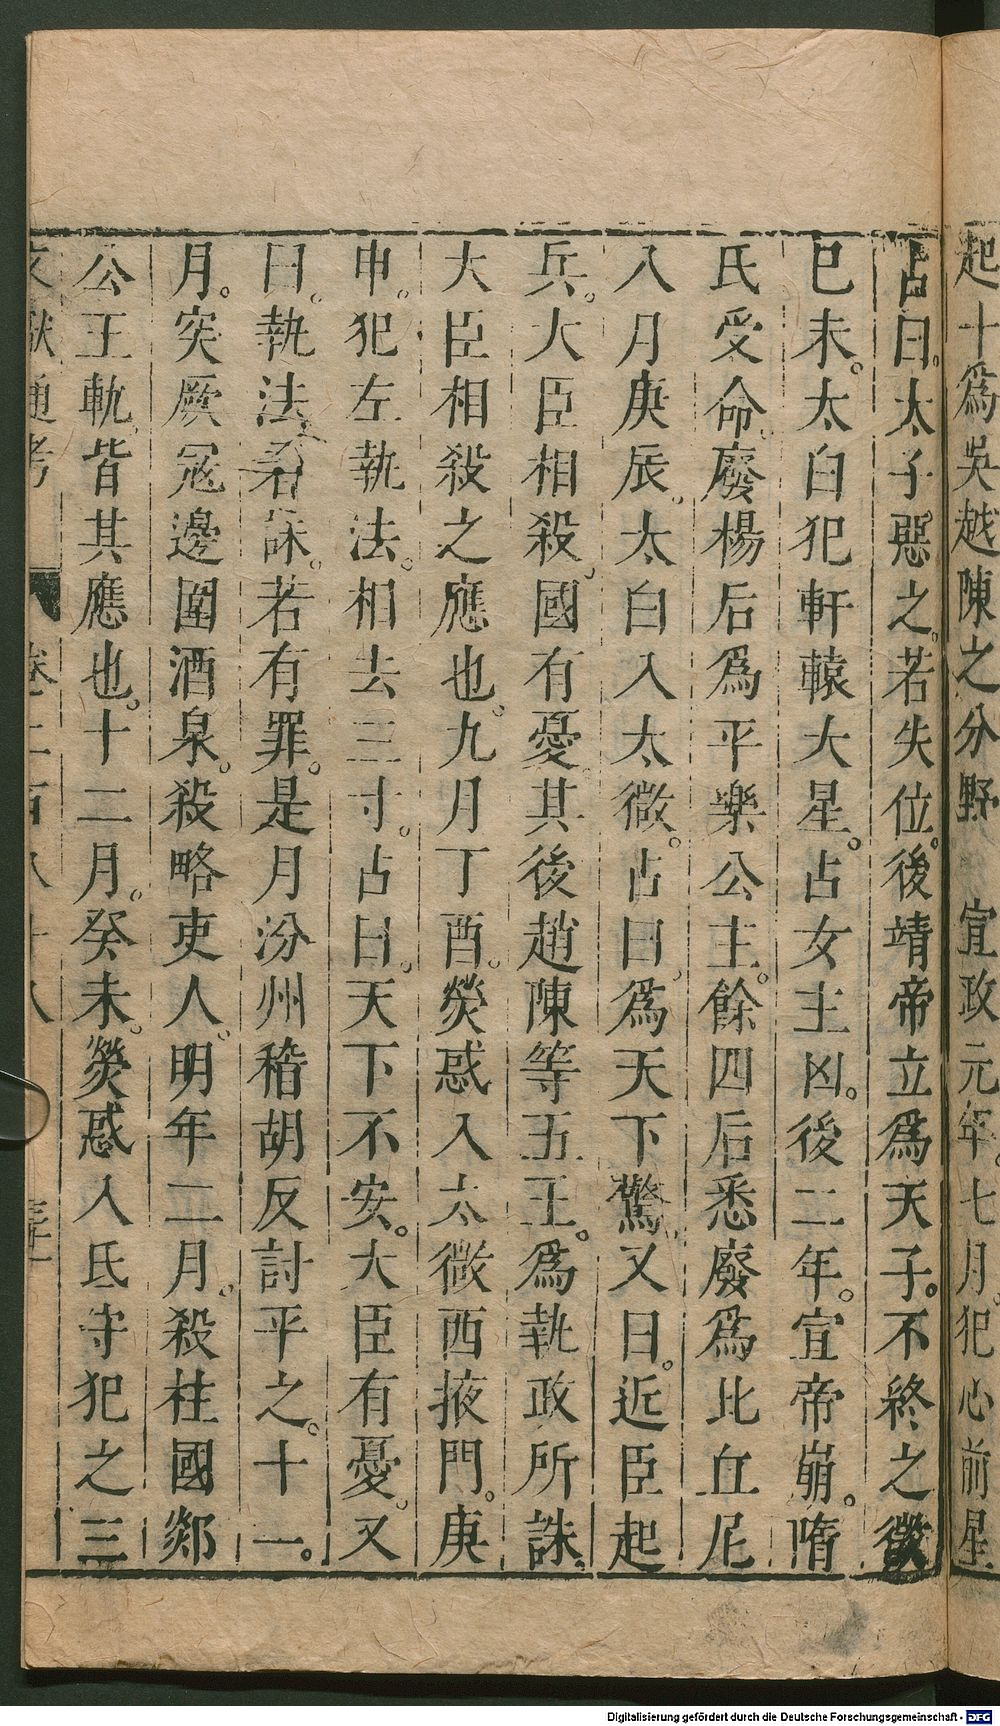 起十為吳越陳之分野　宣政元年。七月。犯心前星
占曰。太子惡之。若失位。後靖帝立爲天子。不終之徵
巳未。太白犯軒轅大星。占女主凶。後二年。宣帝崩。隋
氏受命。廢楊后爲平樂公主。餘四后悉廢爲比丘尼
八月庚辰。太白入太微。占曰。爲天下驚。又曰。近臣起
兵。大臣相殺。國有憂。其後趙陳等五王。爲執政所誅。
大臣相殺之應也。九月丁酉。熒惑入太微西掖門。庚
申。犯左執法。相去三寸。占曰。天下不安。大臣有憂。又
曰。執法者誅。若有罪。是月汾州稽胡反討平之。十一。
月。突厥冦邊圍酒泉。殺略吏人。明年二月。殺柱國郯
公王軌。皆其應也。十二月。癸未。熒惑入氐守犯之三
文獻通考　卷二百八十八　
Digitalisierung gefördert durch die Deutsche Forschungsgemeinschaft - DFG